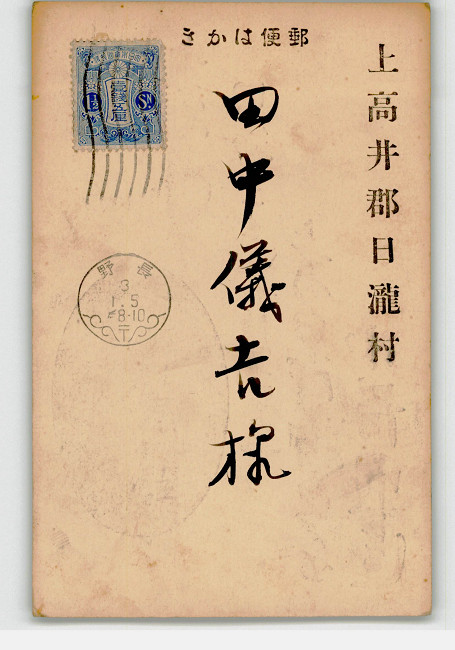 きかはが便郵
上高井郡日瀧村
田中儀吉様
壹錢五厘
1½
SN
長野
3
1.5
8-10
〒